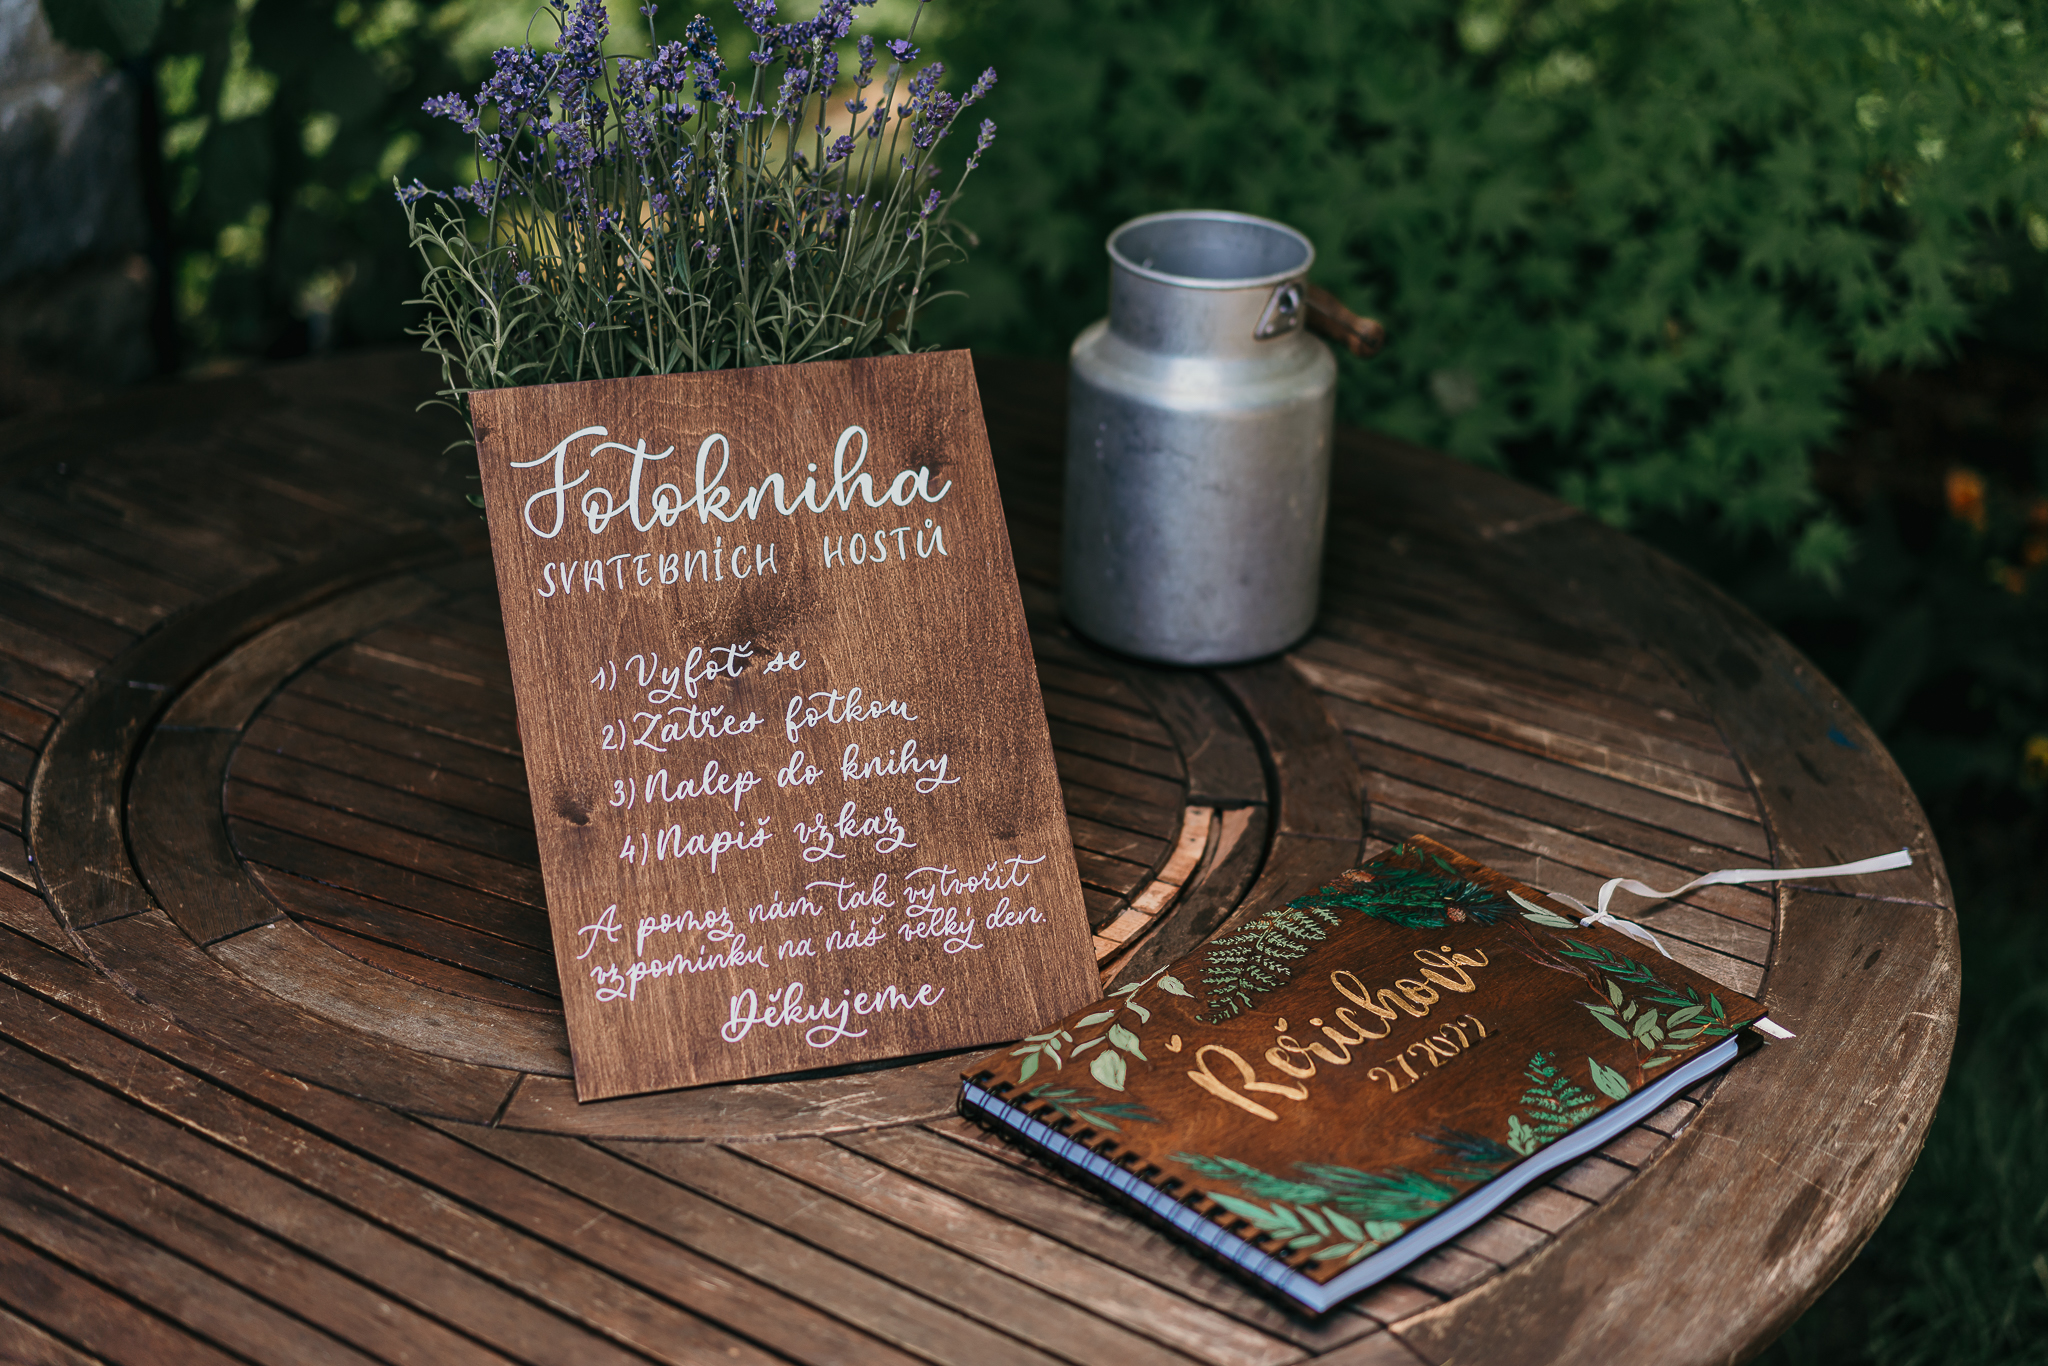 Fotokniha
SVATEBNÍCH HOSTŮ
1) Vyfoť se
2) Zatřes fotkou
3) Nalep do knihy
4) Napiš vzkaz
A pomoz nám tak vytvořit
vzpomínku na náš velký den.
Děkujeme
Řeřichovi
2.7.2022